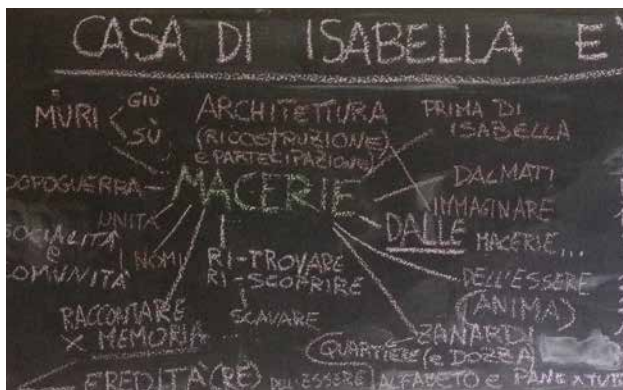 CASA DI ISABELLA E'
MURI GIÙ
SÙ
ARCHITETTURA
(RICOSTRUZIONE)
E PARTECIPAZIONE)
PRIMA DI
ISABELLA
DOPOGUERRA
MACERIE
DALMATI
UNITÀ
IMMAGINARE
DALLE MACERIE...
SOCIALITÀ
E
COMUNITÀ
I NOMI
RI-TROVARE
RI-SCOPRIRE
SCAVARE
DELL'ESSERE
(ANIMA)
RACCONTARE
X MEMORIA
ZANARDI
(QUARTIERE (e DOZZA)
EREDITÀ(RE) DELL'ESSERE ALFABETO e PANE X TUTTI